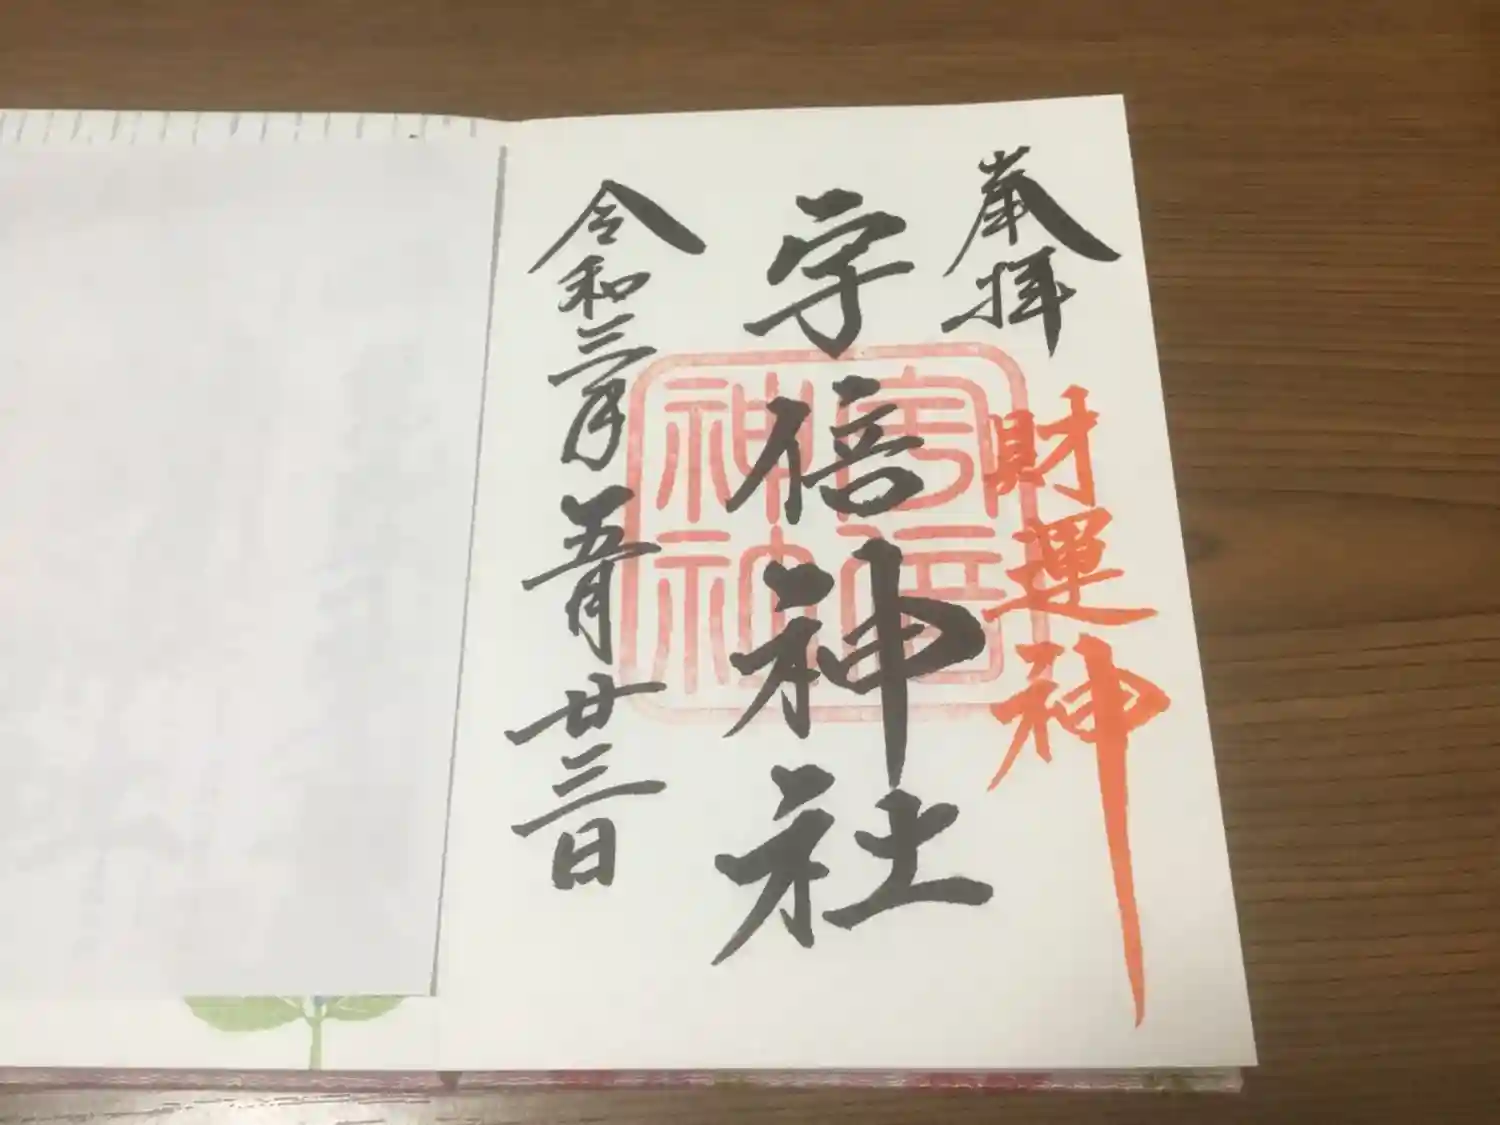 奉拝
財運神
宇倍神社
宇倍
神社
令和三年五月廿三日